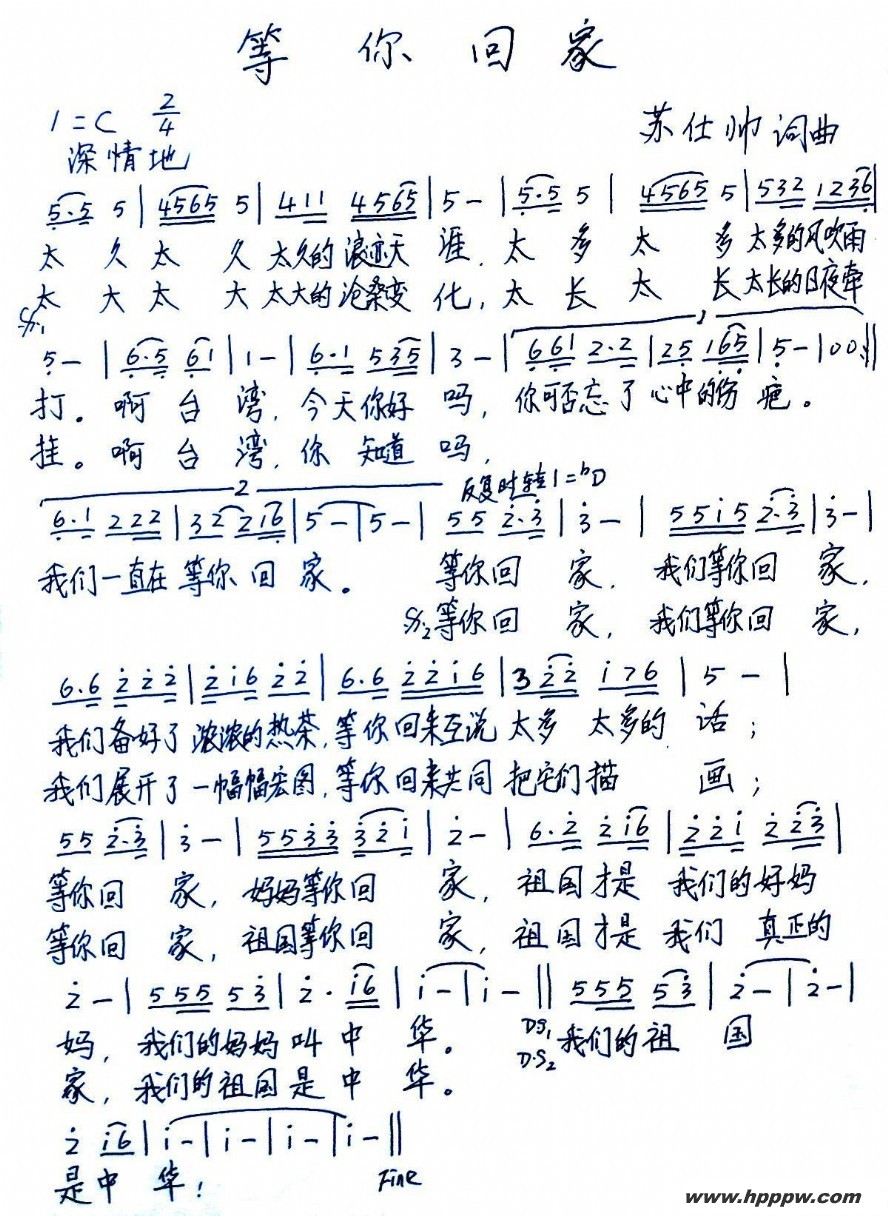 等你回家
1=C 2/4
苏仕帅 词曲
深情地
5·5 5 | 4565 5 | 411 4565 | 5 - | 5·5 5 | 4565 5 | 532 1236 |
太久太久太久的浪迹天涯,太多太多太多的风吹雨
太大太大太大的沧桑变化,太长太长太长的日夜牵
5 - | 6·5 61 | 1 - | 6·1 535 | 3 - | 661 2·2 | 25 165 | 5 - | 00 :||
打。啊台湾,今天你好吗,你可否忘了心中的伤疤。
挂。啊台湾,你知道吗,
2
反复时转1=bD
6·1 222 | 32 216 | 5 - | 5 - | 55 2·3 | 3 - | 5515 2·3 | 3 - |
我们一直在等你回家。等你回家,我们等你回家,
等你回家,我们等你回家,
6·6 222 | 216 22 | 6·6 2216 | 322 176 | 5 - |
我们备好了浓浓的热茶,等你回来互说太多太多的话;
我们展开了一幅幅宏图,等你回来共同把它们描画;
55 2·3 | 3 - | 5533 321 | 2 - | 6·2 216 | 221 223 |
等你回家,妈妈等你回家,祖国才是我们的好妈
等你回家,祖国等你回家,祖国才是我们真正的
2 - | 555 53 | 2 · 16 | 1 - | 1 - || 555 53 | 2 - | 2 - |
妈,我们的妈妈叫中华。DS1 我们的祖国
家,我们的祖国是中华。D·S2
2 16 | 1 - | 1 - | 1 - | 1 - ||
是中华!Fine
www.hpppw.com